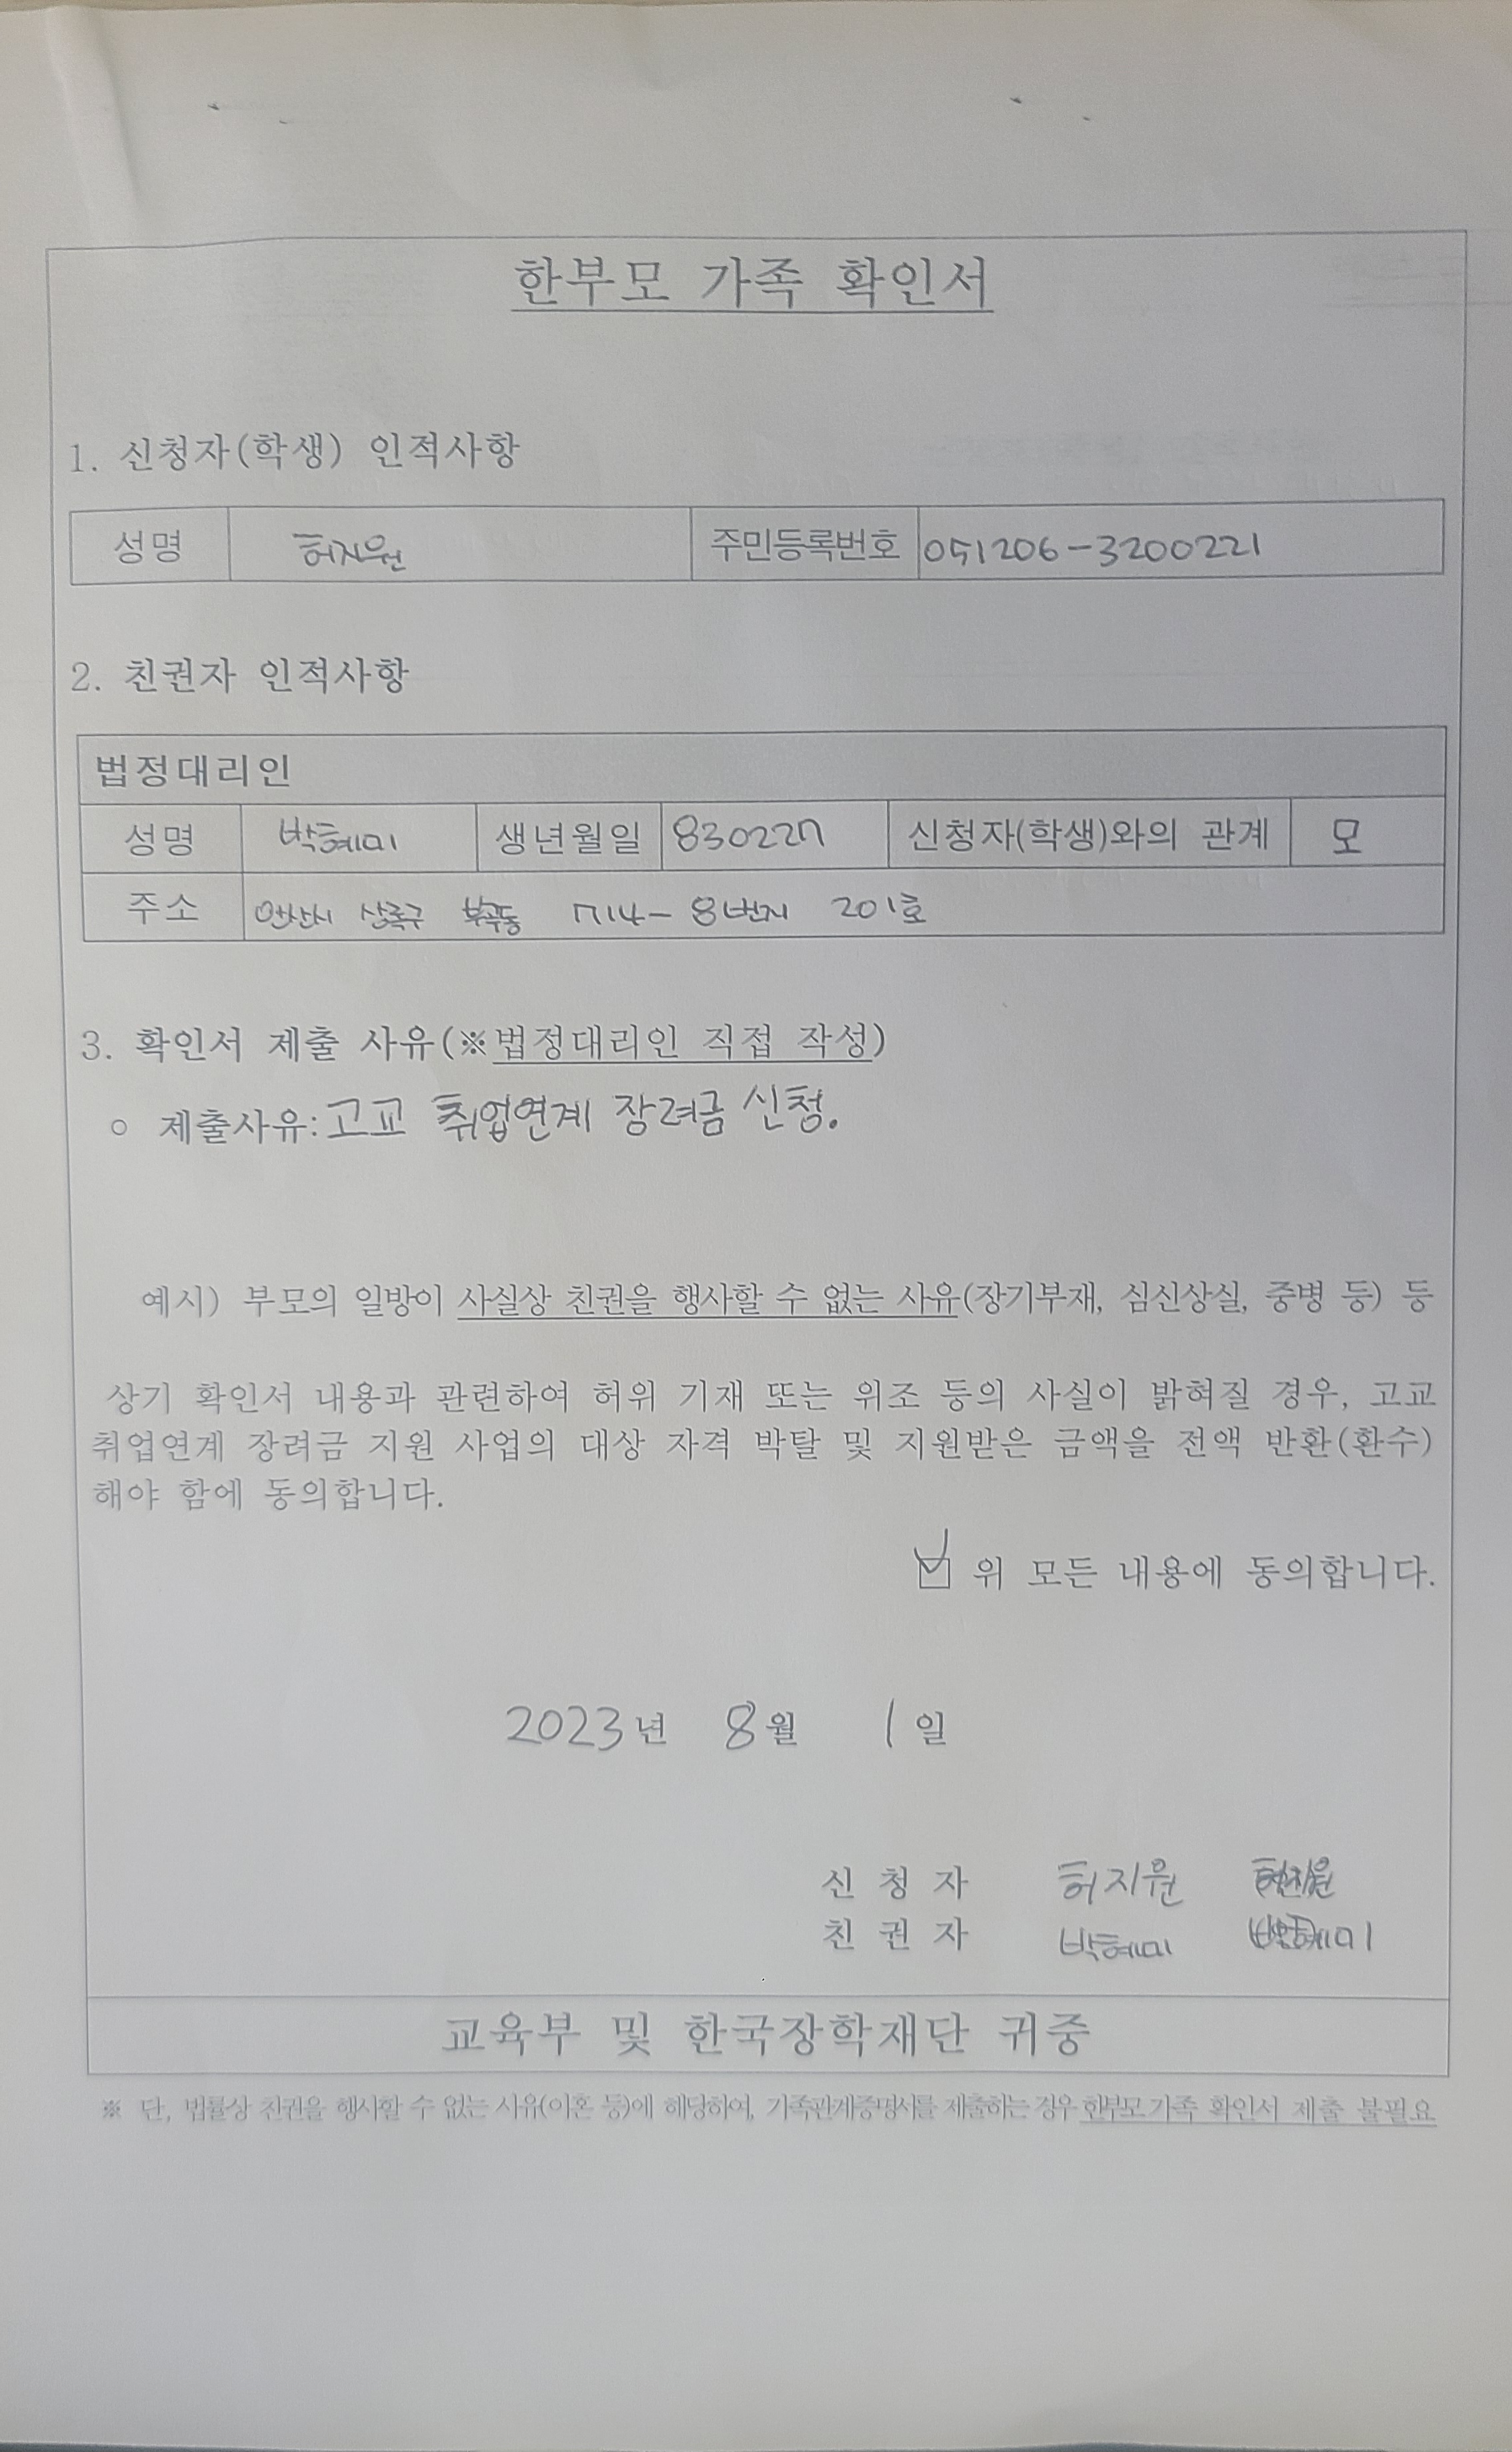 한부모 가족 확인서
1. 신청자(학생) 인적사항
성명 허지원 주민등록번호 051206-3200221
2. 친권자 인적사항
법정대리인
성명 박혜미 생년월일 830227 신청자(학생)와의 관계 모
주소 안산시 상록구 부곡동 714-8번지 201호
3. 확인서 제출 사유(※법정대리인 직접 작성)
○ 제출사유: 고교 취업연계 장려금 신청.
예시) 부모의 일방이 사실상 친권을 행사할 수 없는 사유(장기부재, 심신상실, 중병 등) 등
상기 확인서 내용과 관련하여 허위 기재 또는 위조 등의 사실이 밝혀질 경우, 고교
취업연계 장려금 지원 사업의 대상 자격 박탈 및 지원받은 금액을 전액 반환(환수)
해야 함에 동의합니다.
☑ 위 모든 내용에 동의합니다.
2023년 8월 1일
신 청 자 허지원 허지원
친 권 자 박혜미 박혜미
교육부 및 한국장학재단 귀중
※ 단, 법률상 친권을 행사할 수 없는 사유(이혼 등)에 해당하여, 가족관계증명서를 제출하는 경우 한부모가족 확인서 제출 불필요